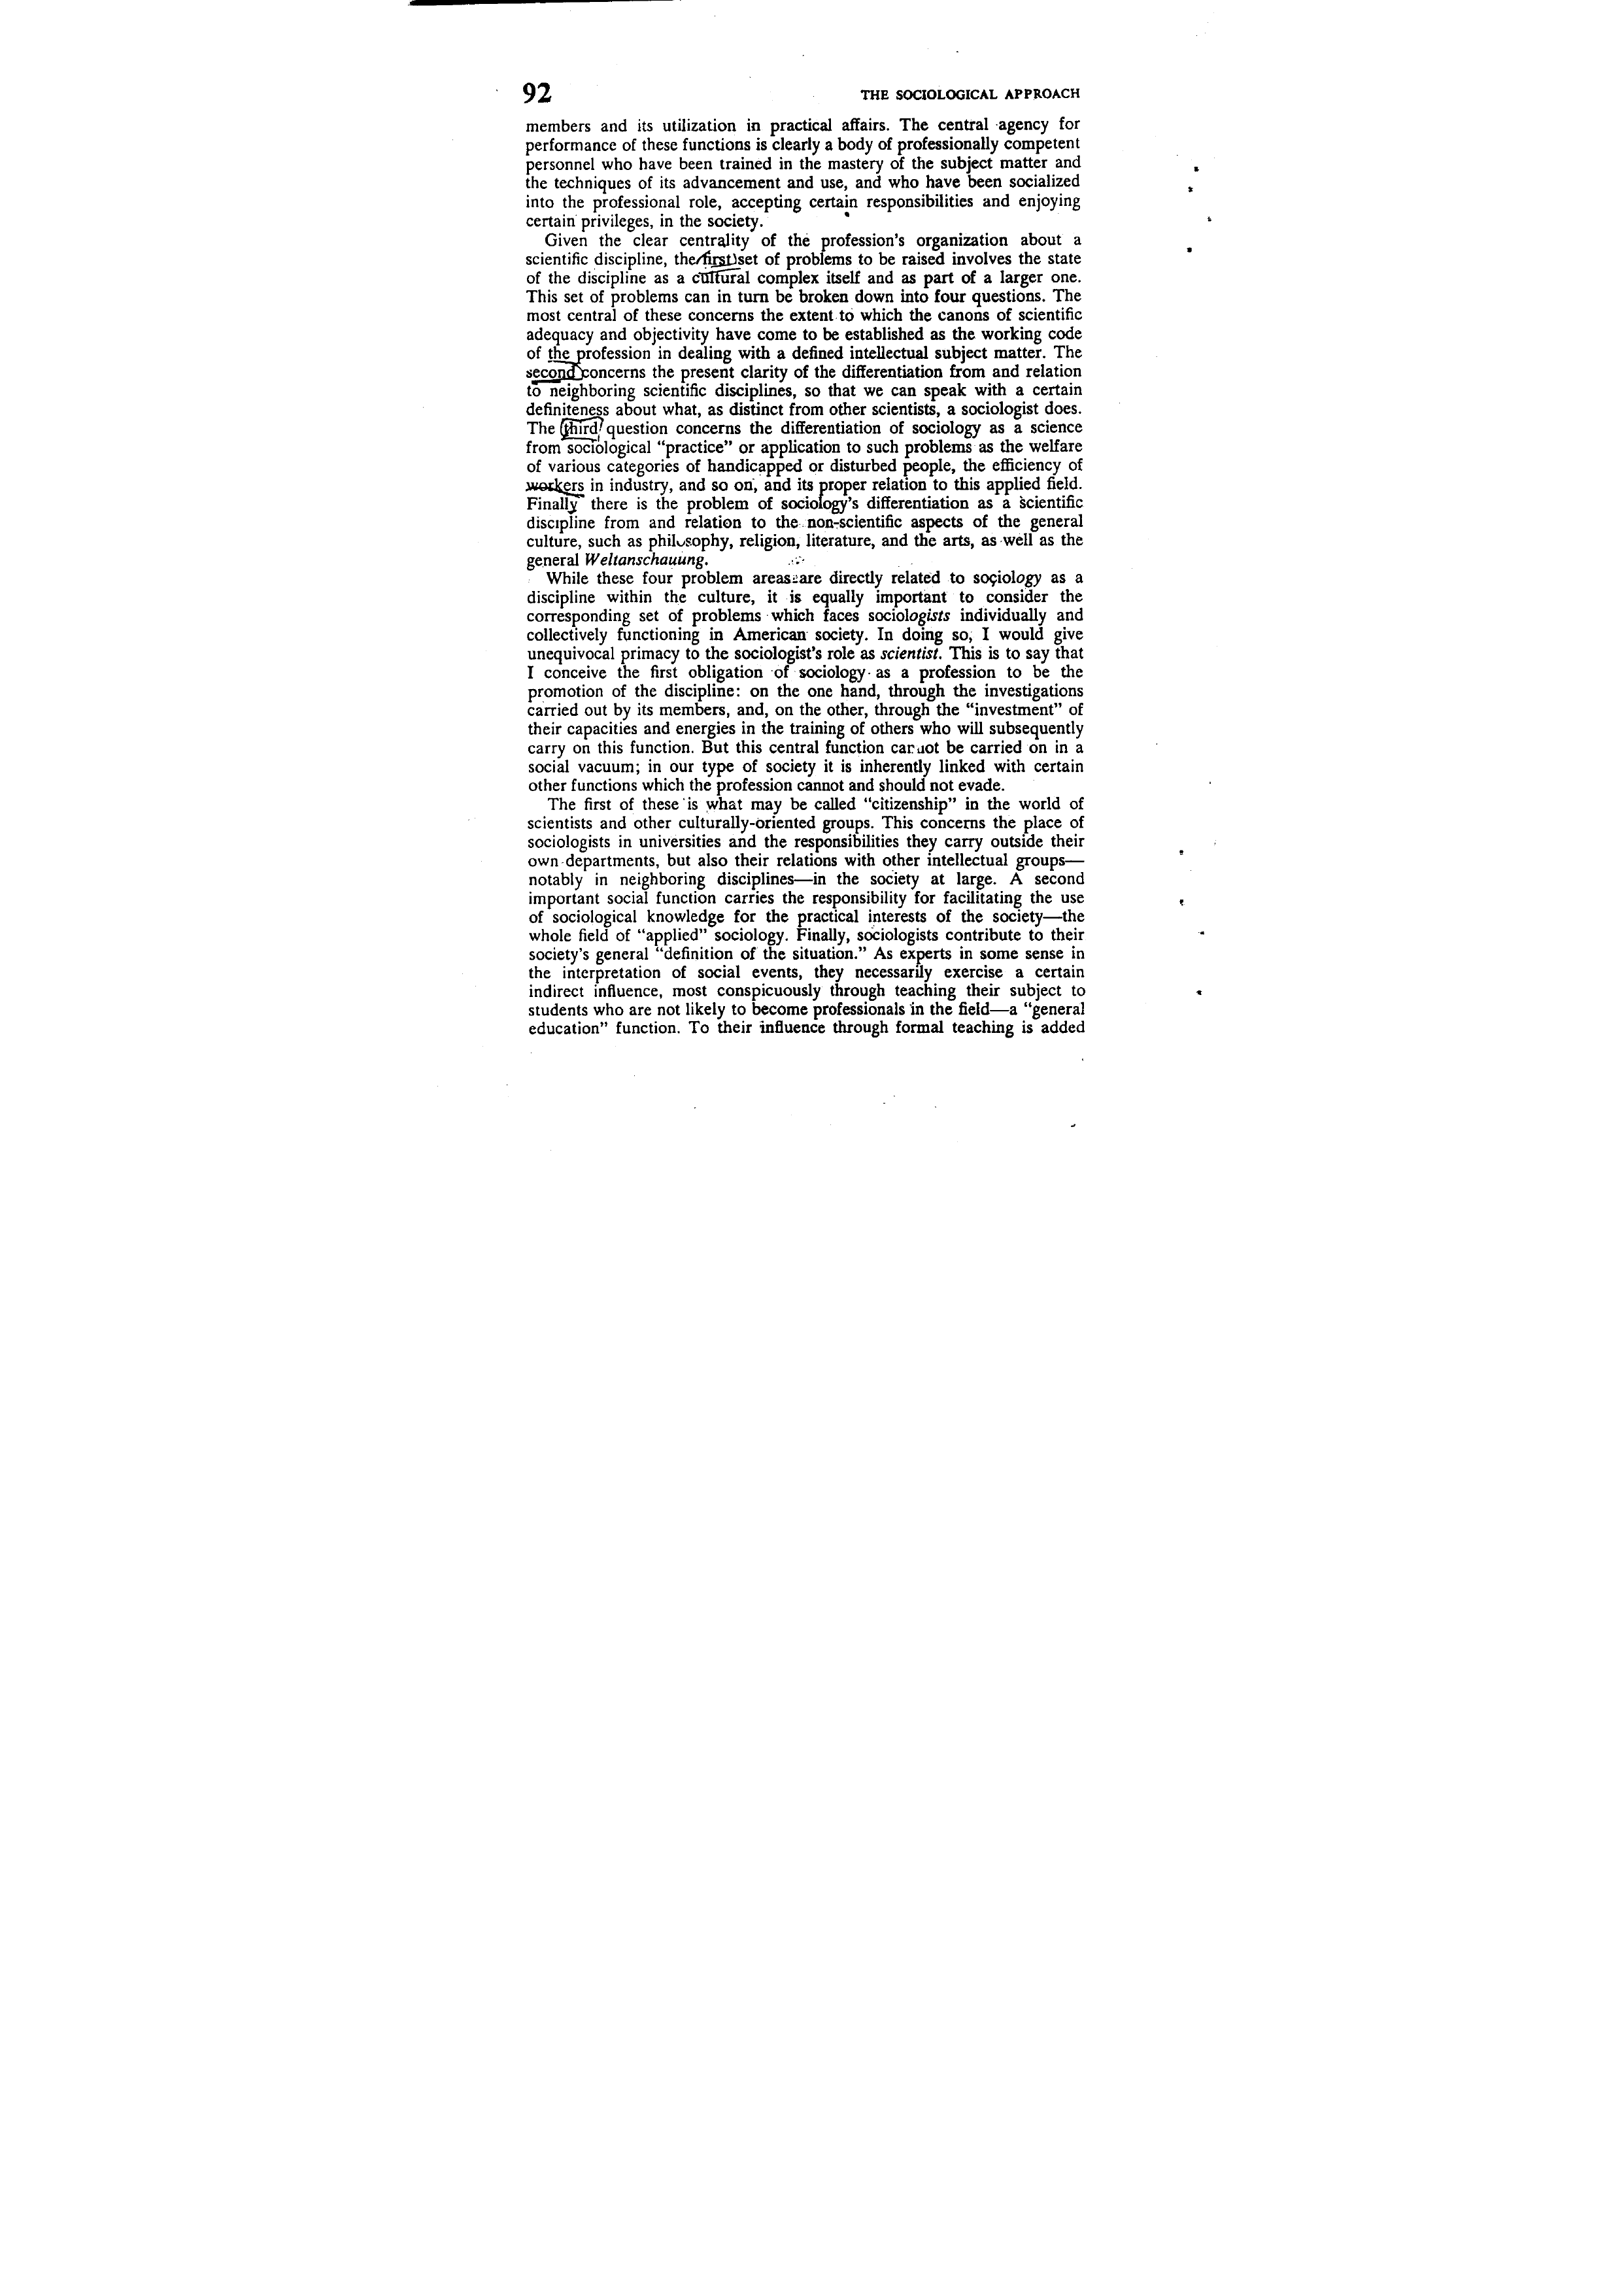 92 THE SOCIOLOGICAL APPROACH
members and its utilization in practical affairs. The central agency for
performance of these functions is clearly a body of professionally competent
personnel who have been trained in the mastery of the subject matter and
the techniques of its advancement and use, and who have been socialized
into the professional role, accepting certain responsibilities and enjoying
certain privileges, in the society.
Given the clear centrality of the profession's organization about a
scientific discipline, the first set of problems to be raised involves the state
of the discipline as a cultural complex itself and as part of a larger one.
This set of problems can in turn be broken down into four questions. The
most central of these concerns the extent to which the canons of scientific
adequacy and objectivity have come to be established as the working code
of the profession in dealing with a defined intellectual subject matter. The
second concerns the present clarity of the differentiation from and relation
to neighboring scientific disciplines, so that we can speak with a certain
definiteness about what, as distinct from other scientists, a sociologist does.
The third question concerns the differentiation of sociology as a science
from sociological “practice” or application to such problems as the welfare
of various categories of handicapped or disturbed people, the efficiency of
workers in industry, and so on, and its proper relation to this applied field.
Finally there is the problem of sociology's differentiation as a scientific
discipline from and relation to the non-scientific aspects of the general
culture, such as philosophy, religion, literature, and the arts, as well as the
general Weltanschauung.
While these four problem areas are directly related to sociology as a
discipline within the culture, it is equally important to consider the
corresponding set of problems which faces sociologists individually and
collectively functioning in American society. In doing so, I would give
unequivocal primacy to the sociologist's role as scientist. This is to say that
I conceive the first obligation of sociology as a profession to be the
promotion of the discipline: on the one hand, through the investigations
carried out by its members, and, on the other, through the “investment” of
their capacities and energies in the training of others who will subsequently
carry on this function. But this central function cannot be carried on in a
social vacuum; in our type of society it is inherently linked with certain
other functions which the profession cannot and should not evade.
The first of these is what may be called “citizenship” in the world of
scientists and other culturally-oriented groups. This concerns the place of
sociologists in universities and the responsibilities they carry outside their
own departments, but also their relations with other intellectual groups—
notably in neighboring disciplines—in the society at large. A second
important social function carries the responsibility for facilitating the use
of sociological knowledge for the practical interests of the society—the
whole field of “applied” sociology. Finally, sociologists contribute to their
society's general “definition of the situation.” As experts in some sense in
the interpretation of social events, they necessarily exercise a certain
indirect influence, most conspicuously through teaching their subject to
students who are not likely to become professionals in the field—a “general
education” function. To their influence through formal teaching is added